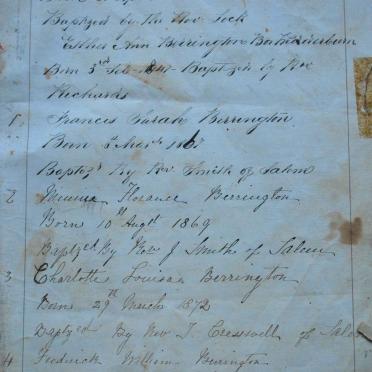 Baptized by the Rev Lock
Esther Ann Berrington
Born 3rd Feb Baptized by Rev
Richards
1 Frances Sarah Berrington
Born
Baptzd By Rev Smith of Salem
2 Florance Berrington
Born 10st Augt 1869
Baptzed By Rev J Smith of Salem
3 Charlotte Louisa Berrington
Born 29th March 1872
Baptzed By Rev T. Cresswell of Salem
4 Fredrick William Berrington